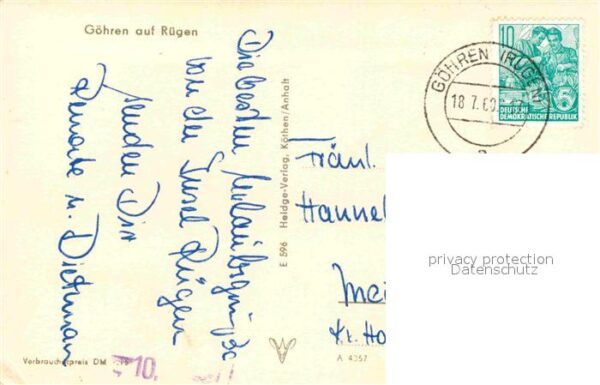 Göhren auf Rügen
Die besten Urlaubsgrüße
von der Insel Rügen
senden Dir
Renate u. Dietmar
Verbraucherpreis DM
10.
E 596 Heldge-Verlag, Köthen/Anhalt
A 4357
GÖHREN (RÜGEN)
18.7.60
a
10
5
DEUTSCHE
DEMOKRATISCHE REPUBLIK
Fräul.
Hannel
Mei
Kr. Ho
privacy protection
Datenschutz